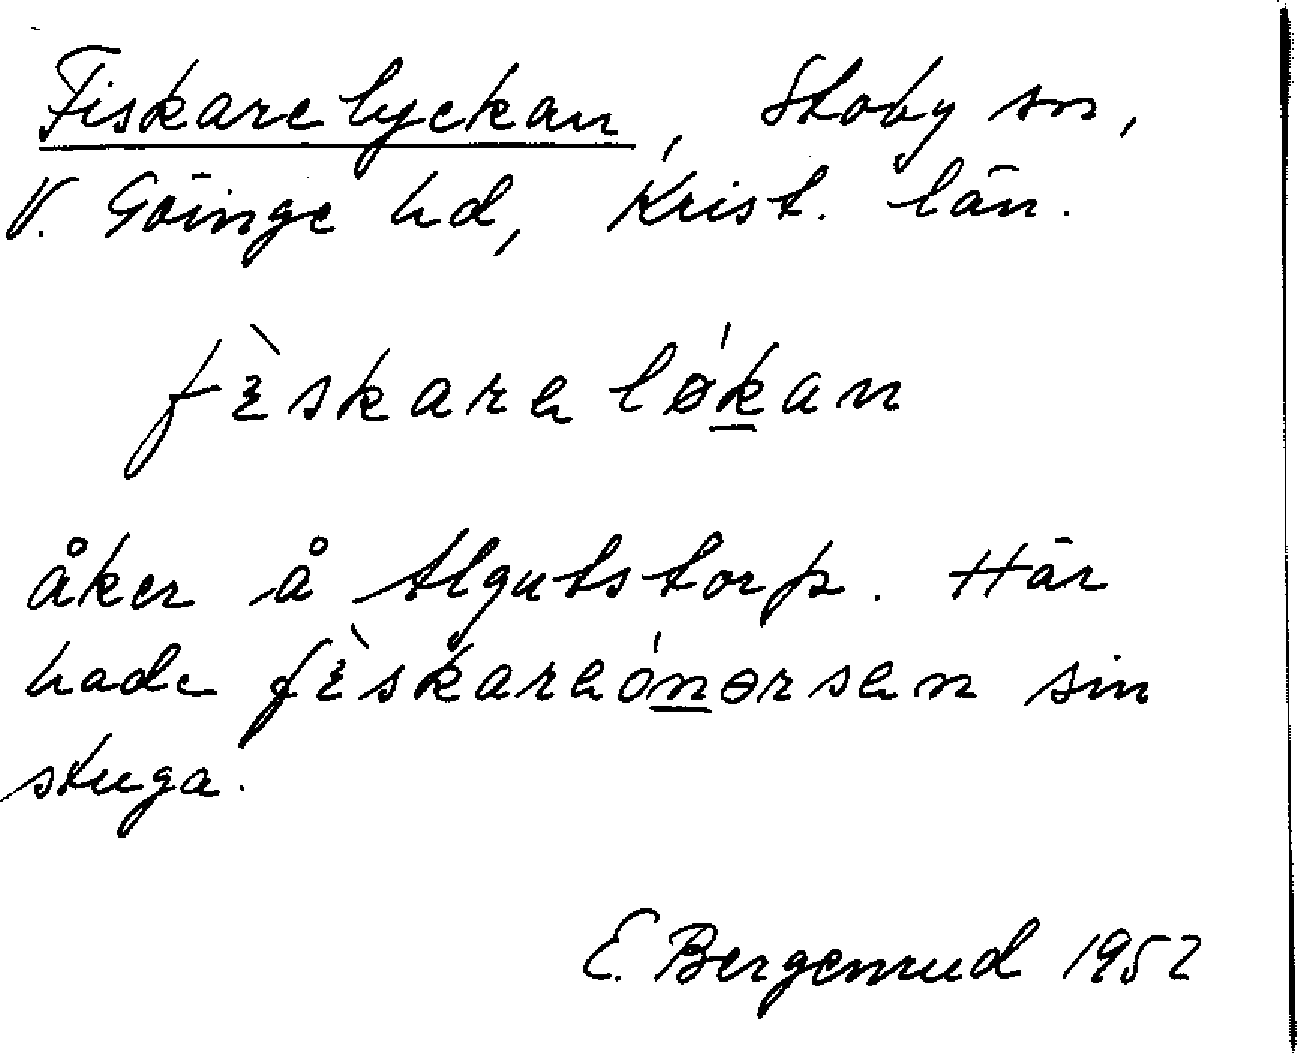 Fiskarelyckan, Stoby sn,
V. Göinge hd, Krist. län.
fèskarelǿkan
åker å Algutstorp. Här
hade fèskareónərsen sin
stuga.
E. Bergenrud 1952